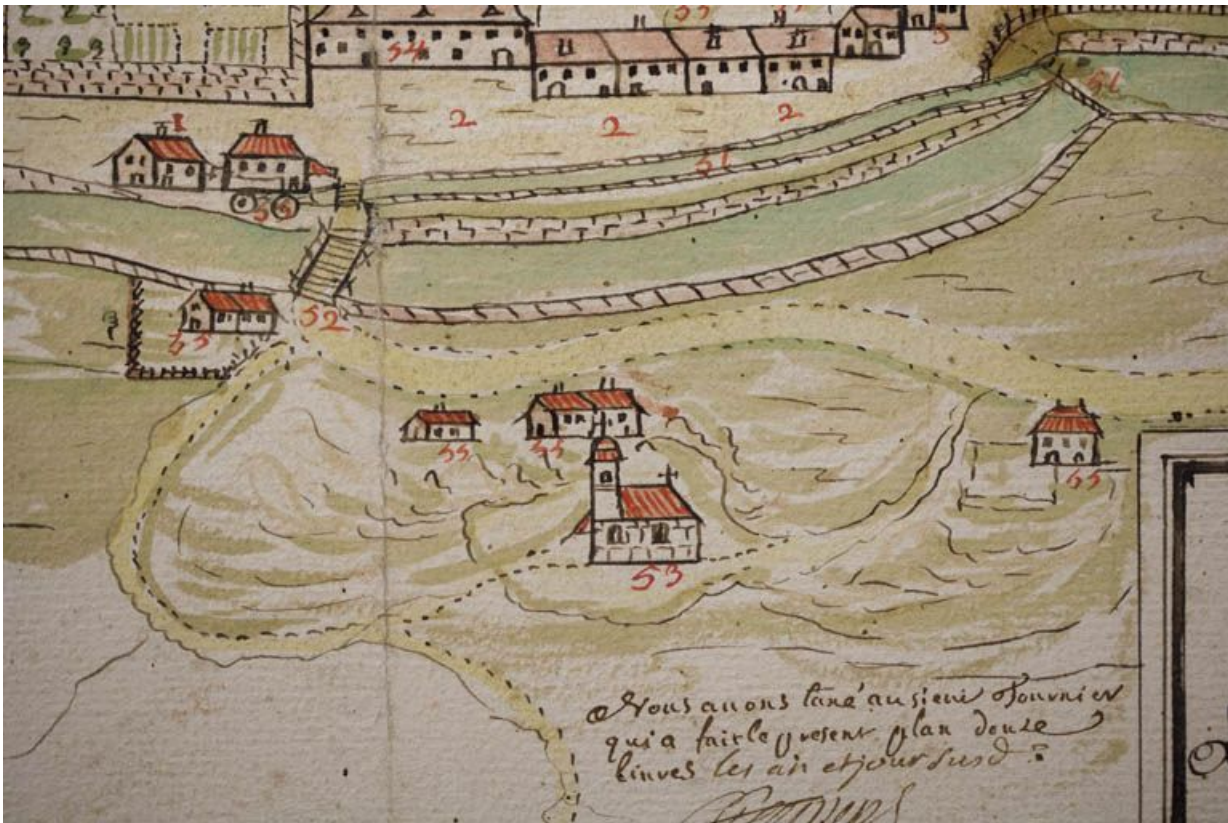 55 55
54
5
51
2 2 2
1
51
55
52
55
55 55
55
53
Nous auons taxé au sieur Tournier
qui a fait le present plan douze
liures les an et jour susd